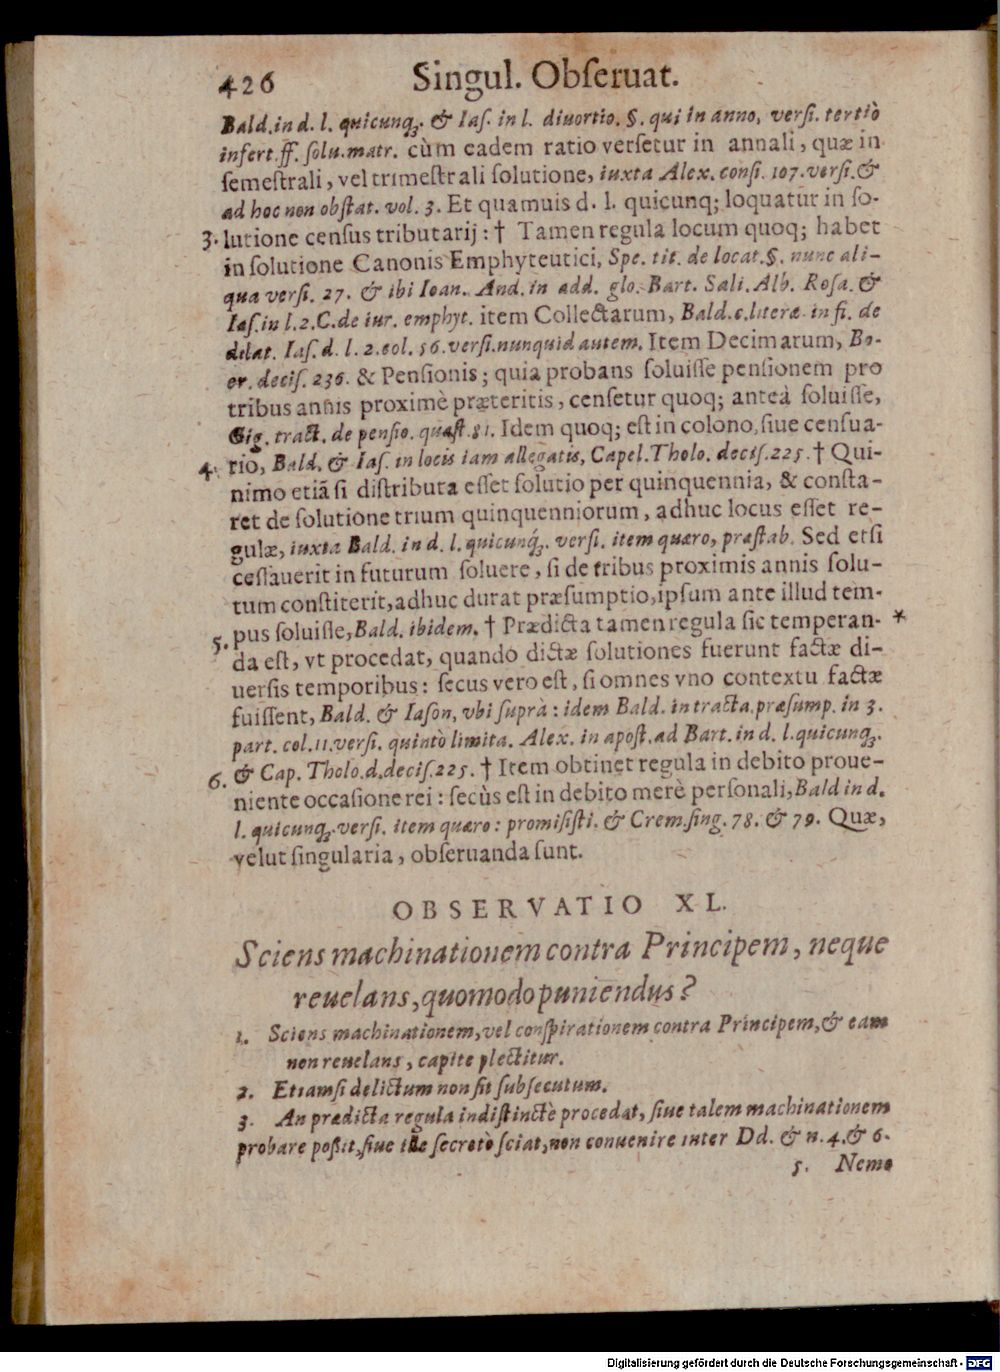 426 Singul. Obſeruat.
Bald. in d. l. quicunqꝫ. & Iaſ. in l. diuortio. §. qui in anno, verſi. tertiò
infert. ff. ſolu. matr. cùm eadem ratio verſetur in annali, quæ in
ſemeſtrali, vel trimeſtrali ſolutione, iuxta Alex. conſi. 107. verſi. &
ad hoc non obſtat. vol. 3. Et quamuis d. l. quicunq; loquatur in ſo-
3. lutione cenſus tributarij: † Tamen regula locum quoq; habet
in ſolutione Canonis Emphyteutici, Spe. tit. de locat. §. nunc ali-
qua verſi. 27. & ibi Ioan. And. in add. glo. Bart. Sali. Alb. Roſa. &
Iaſ. in l. 2. C. de iur. emphyt. item Collectarum, Bald. c. literæ in fi. de
delat. Iaſ. d. l. 2. col. 56. verſi. nunquid autem. Item Decimarum, Bo-
er. deciſ. 236. & Penſionis; quia probans ſoluiſſe penſionem pro
tribus annis proximè præteritis, cenſetur quoq; anteà ſoluiſſe,
Gig. tract. de penſio. quæſt. 81. Idem quoq; eſt in colono, ſiue cenſua-
4. rio, Bald. & Iaſ. in locis iam allegatis, Capel. Tholo. deciſ. 225. † Qui-
nimo etiã ſi diſtributa eſſet ſolutio per quinquennia, & conſta-
ret de ſolutione trium quinquenniorum, adhuc locus eſſet re-
gulæ, iuxta Bald. in d. l. quicunq́ꝫ. verſi. item quæro, præſtab. Sed etſi
ceſſauerit in futurum ſoluere, ſi de tribus proximis annis ſolu-
tum conſtiterit, adhuc durat præſumptio, ipſum ante illud tem-
5. pus ſoluiſſe, Bald. ibidem. † Prædicta tamen regula ſic temperan- *
da eſt, vt procedat, quando dictæ ſolutiones fuerunt factæ di-
uerſis temporibus: ſecus vero eſt, ſi omnes vno contextu factæ
fuiſſent, Bald. & Iaſon, vbi ſuprà: idem Bald. in tracta. præſump. in 3.
part. col. 11. verſi. quintò limita. Alex. in apoſt. ad Bart. in d. l. quicunqꝫ.
6. & Cap. Tholo. d. deciſ. 225. † Item obtinet regula in debito proue-
niente occaſione rei: ſecùs eſt in debito merè perſonali, Bald in d.
l. quicunqꝫ. verſi. item quæro: promiſiſti. & Crem. ſing. 78. & 79. Quæ,
velut ſingularia, obſeruanda ſunt.
OBSERVATIO XL.
Sciens machinationem contra Principem, neque
reuelans, quomodo puniendus?
1. Sciens machinationem, vel conſpirationem contra Principem, & eam
non reuelans, capite plectitur.
2. Etiamſi delictum non ſit ſubſecutum.
3. An prædicta regula indiſtinctè procedat, ſiue talem machinationem
probare poßit, ſiue ille ſecretò ſciat, non conuenire inter Dd. & n. 4. & 6.
5. Nemo
Digitalisierung gefördert durch die Deutsche Forschungsgemeinschaft - DFG